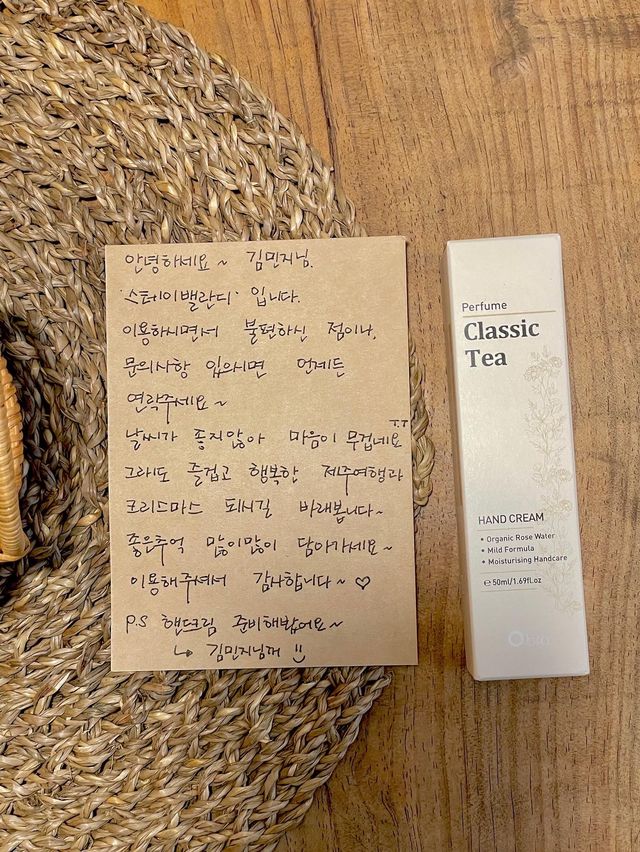 안녕하세요~ 김민지님.
'스테이밸란디' 입니다.
이용하시면서 불편하신 점이나,
문의사항 있으시면 언제든
연락주세요~
날씨가 좋지않아 마음이 무겁네요 T.T
그래도 즐겁고 행복한 제주여행과
크리스마스 되시길 바래봅니다~
좋은추억 많이많이 담아가세요~
이용해주셔서 감사합니다~ ♡
P.S 핸드크림 준비해봤어요~
↳ 김민지님께 :)
Perfume
Classic
Tea
HAND CREAM
• Organic Rose Water
• Mild Formula
• Moisturising Handcare
℮ 50ml/1.69fl.oz